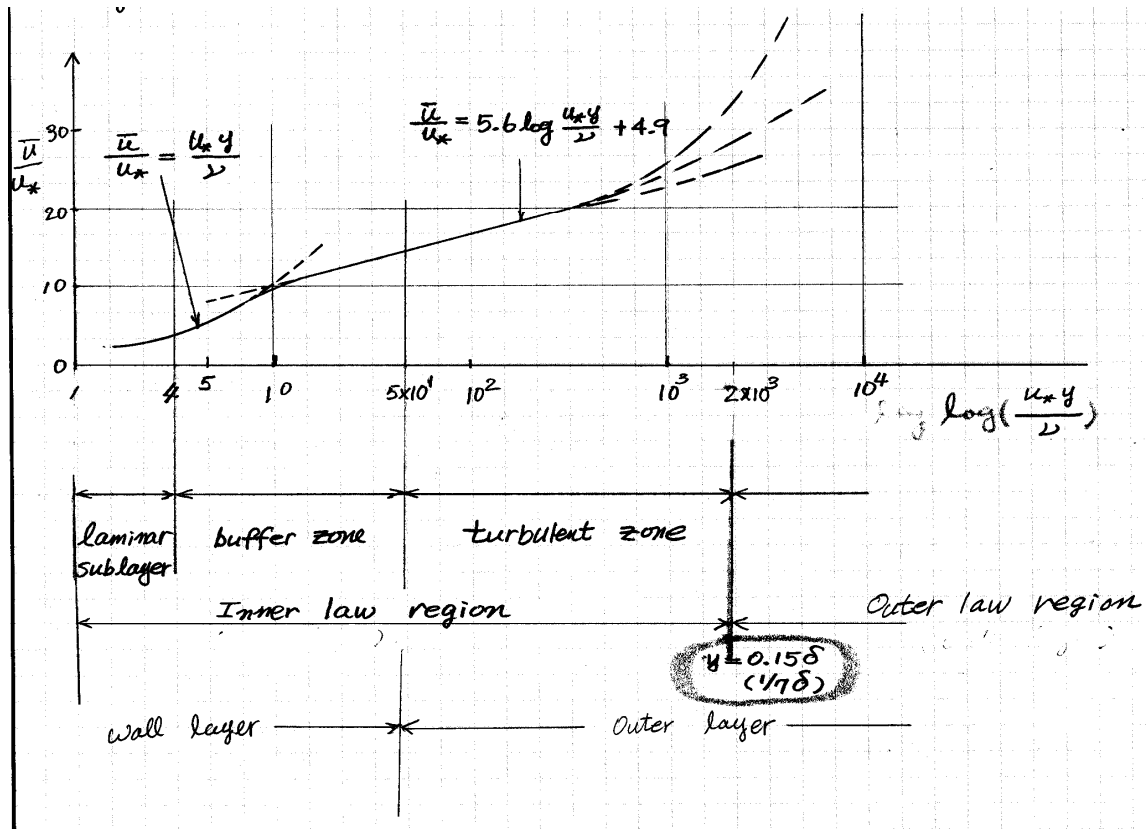 30
20
10
0
ū/u* 
ū/u* = u* y/ν
ū/u* = 5.6 log u* y/ν + 4.9
1 4 5 10 5x10¹ 10² 10³ 2x10³ 10⁴
log(u* y/ν)
laminar sublayer
buffer zone
turbulent zone
Inner law region
Outer law region
y = 0.15δ
(1/7δ)
wall layer
Outer layer